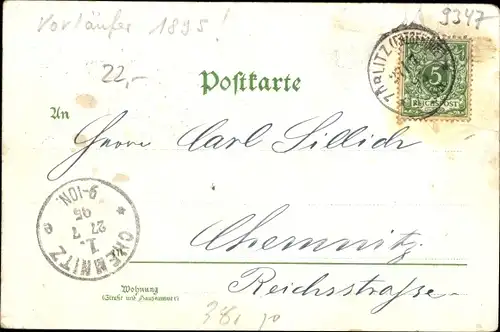 Vorläufer 1895!
9347
22,-
Postkarte
ZÖBLITZ (ERZGEBIRGE)
5
REICHSPOST
An
Herrn Carl Sillich
Chemnitz
Reichsstrasse
CHEMNITZ
1.
27 7
95
9-10N.
e
Wohnung
(Straße und Hausnummer)